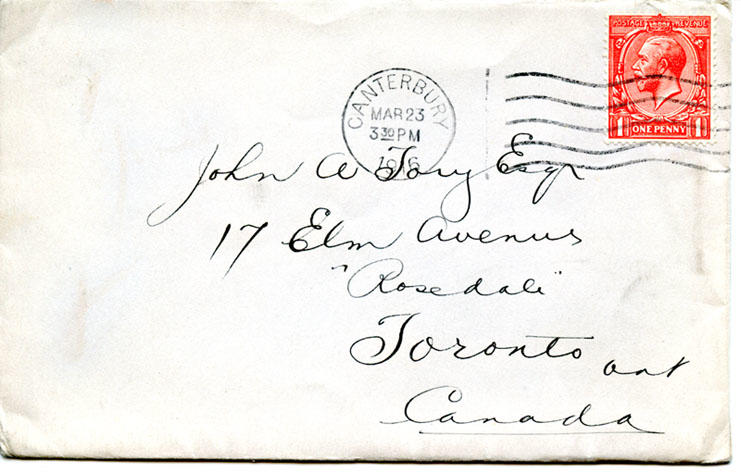 POSTAGE REVENUE
1 ONE PENNY 1
CANTERBURY
MAR 23
3 30 PM
1916
John A Tory Esqr
17 Elm Avenue
"Rosedale"
Toronto Ont
Canada